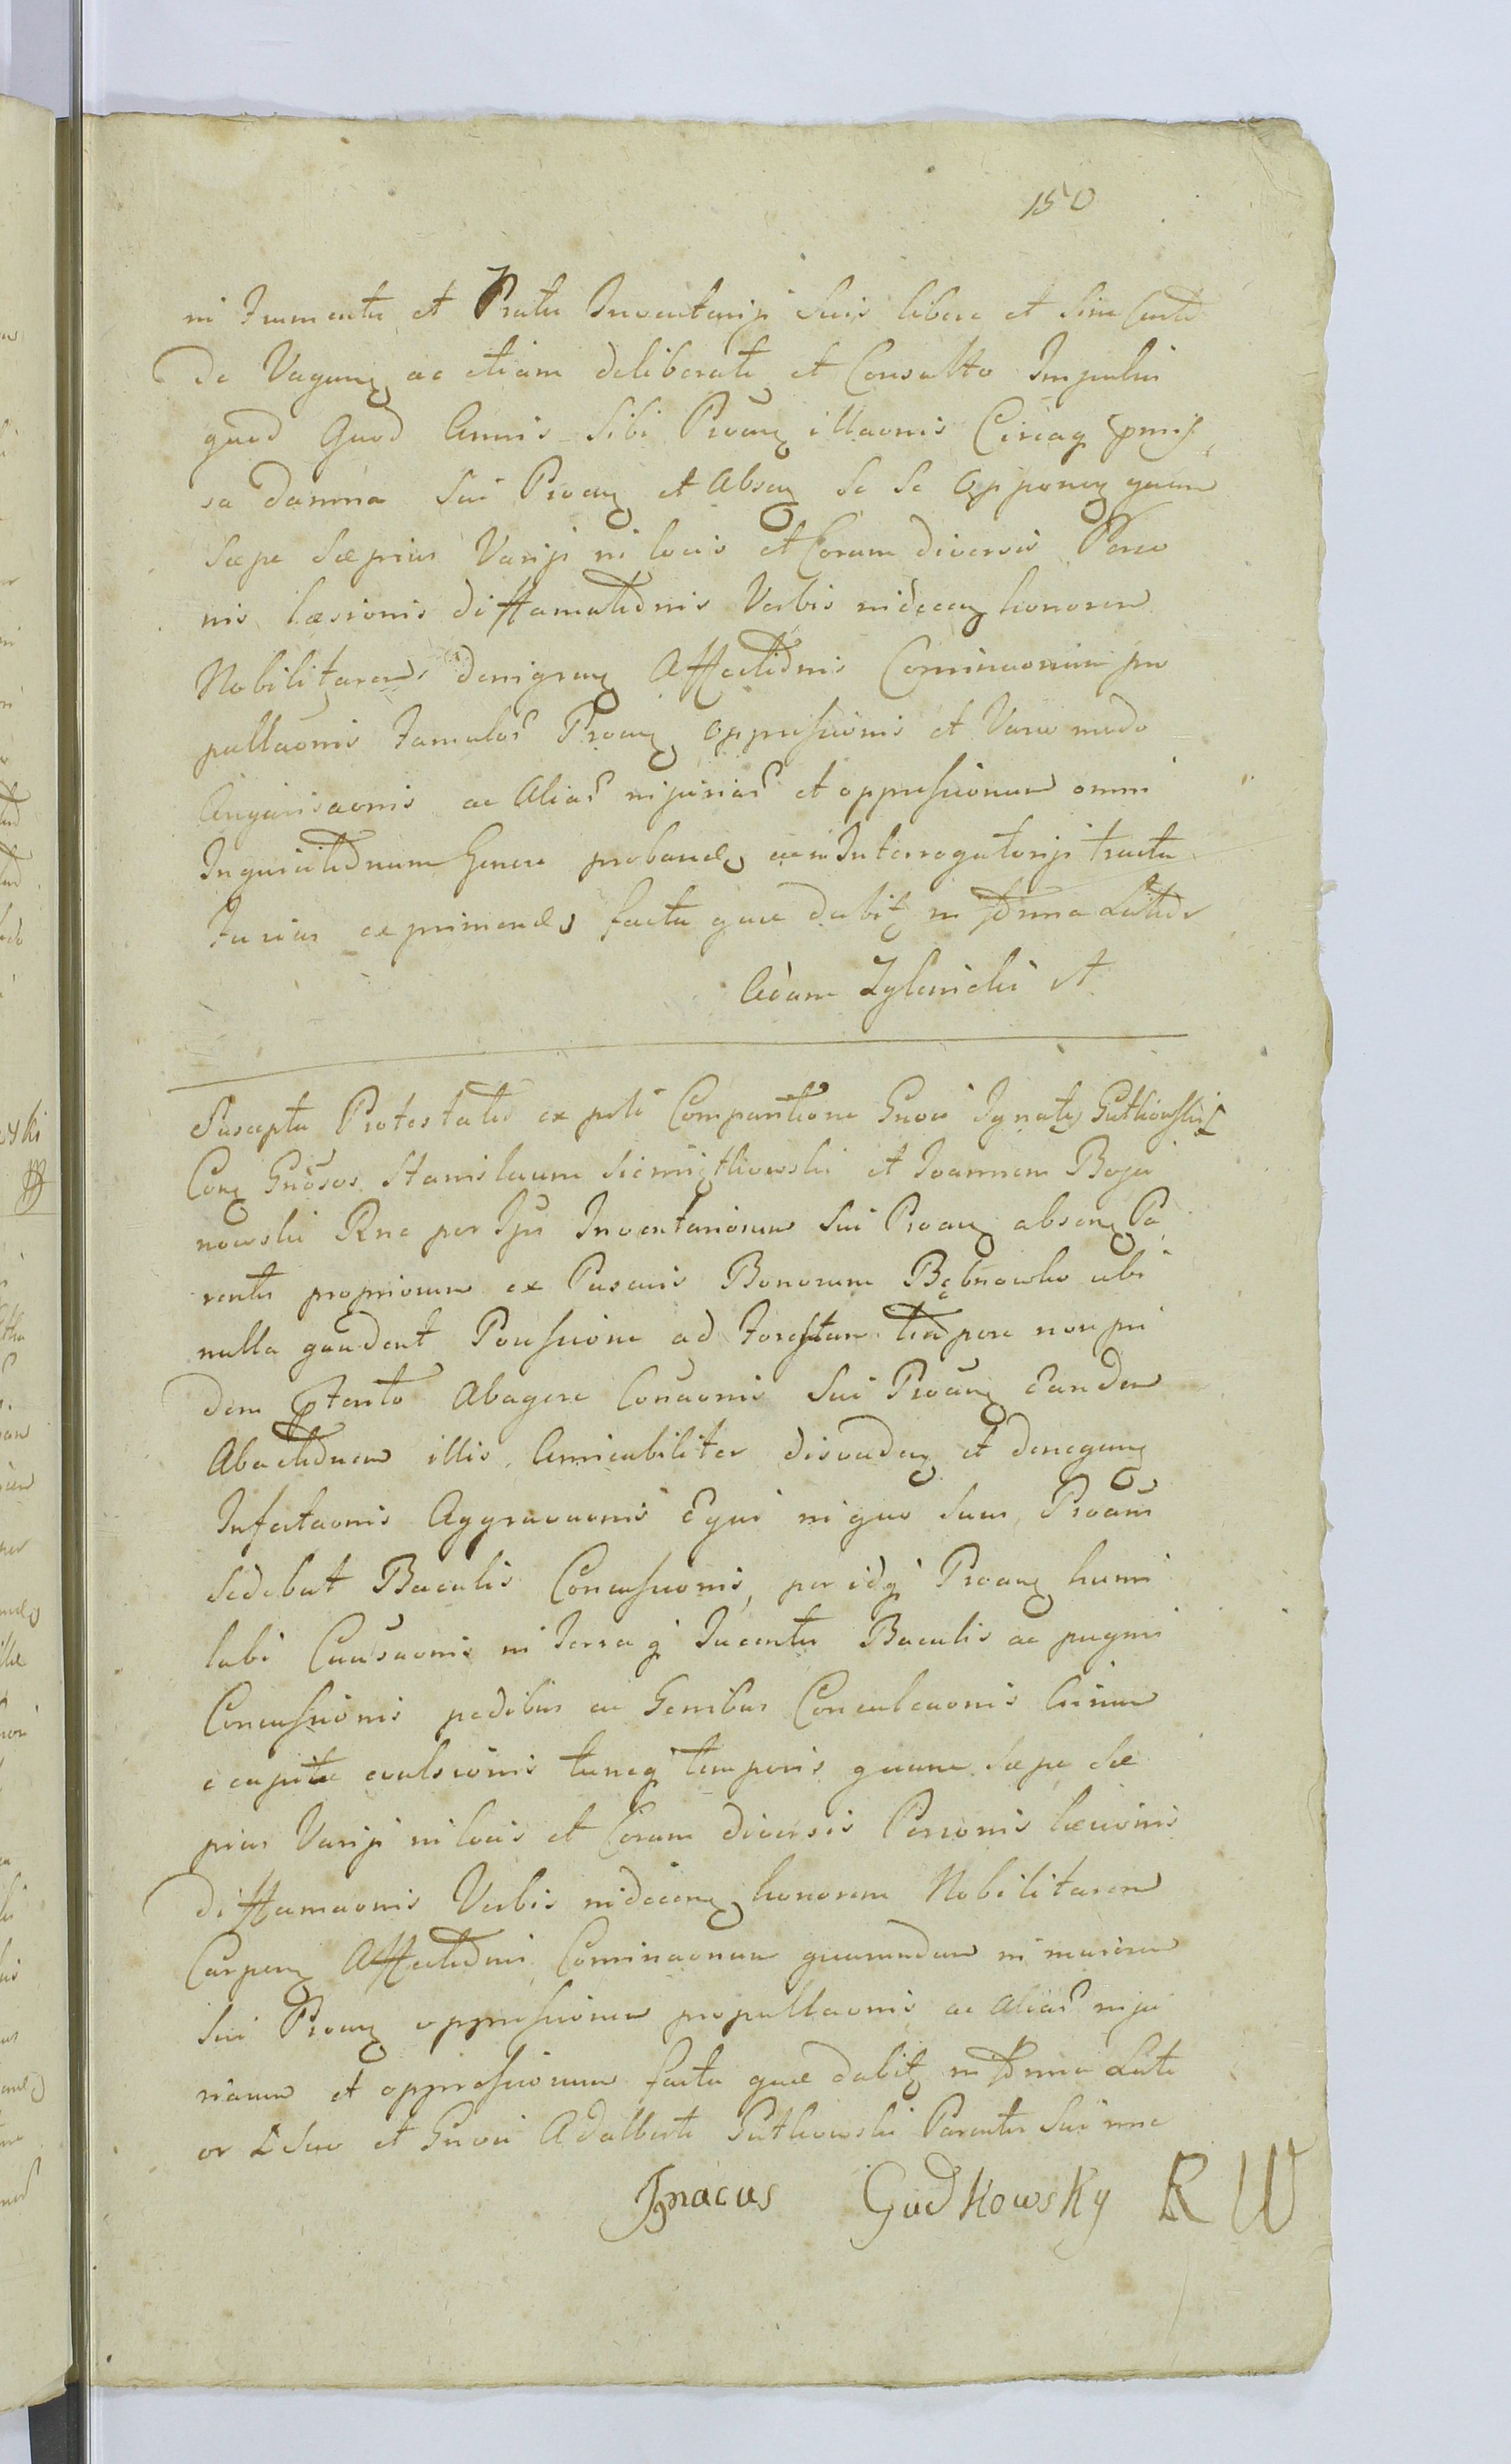 150
in Frumenta et Prata Inventarijs Suis libere et Sine Custo
de Vagan ac etiam deliberate et Consulto Impulsi
quod Quod Annis Sibi Proan illaonis Circaq pmis
sa damna Sui Proan et Absen Se Se Opponen quam
Sæpe Sæpius Varijs in locis et Coram diversis Perso
nis læsionis diffamationis Verbis indecen honorem
Nobilitarem denigran Affectionis Cominaonum pro
pallaonis Famulos Proan oppressionis et Vario modo
Angarisaonis ac Alias injurias et oppressionum omni
Inquisitionum Genere proband, ac in Interrogatorijs tractu
Furius exprimend facta quæ dabit in forma Latiòr
Adam Zglinicki A
Suscepta Protestatio ex psli Comparitione Gnosi Ignatij Gutkowski
Con Gnosos Stanislaum Siemiątkowski et Joannem Boja
nowski Rne per Ipsos Inventariorum Sui Proan absen Pa
rentis propriorum ex Pascuis Bonorum Bębnowko ubi
nulla gaudent Possessione ad Forestam tempore non pri
dem Ptento Abagere Conaonis Sui Proan Eandem
Abactionem illis Amicabiliter disuaden et denegan
Infestaonis Aggravaonis Equi in quo Suus Proans
Sedebat Baculis Concussionis, per idq Proan humi
labi Causaonis in Terraq Jacentis Baculis ac pugnis
Concussionis pedibus ac Genibus Conculcaonis Crinium
e capite evulsionis tuncq temporis quam Sæpe Sæ
pius Varijs in locis et Coram diversis Personis læsionis
diffamaonis Verbis indecen honorem Nobilitarem
Carpen Affectionis Cominaonum quarundam in
Sui Proan oppressionum propallaonis ac Alias inju
riarum et oppressionum facta quæ dabit in forma Lati
or L Suo et Gnosi Adalberti Gutkowski Parentis Sui nne
Jgnacus Gudkowsky R W